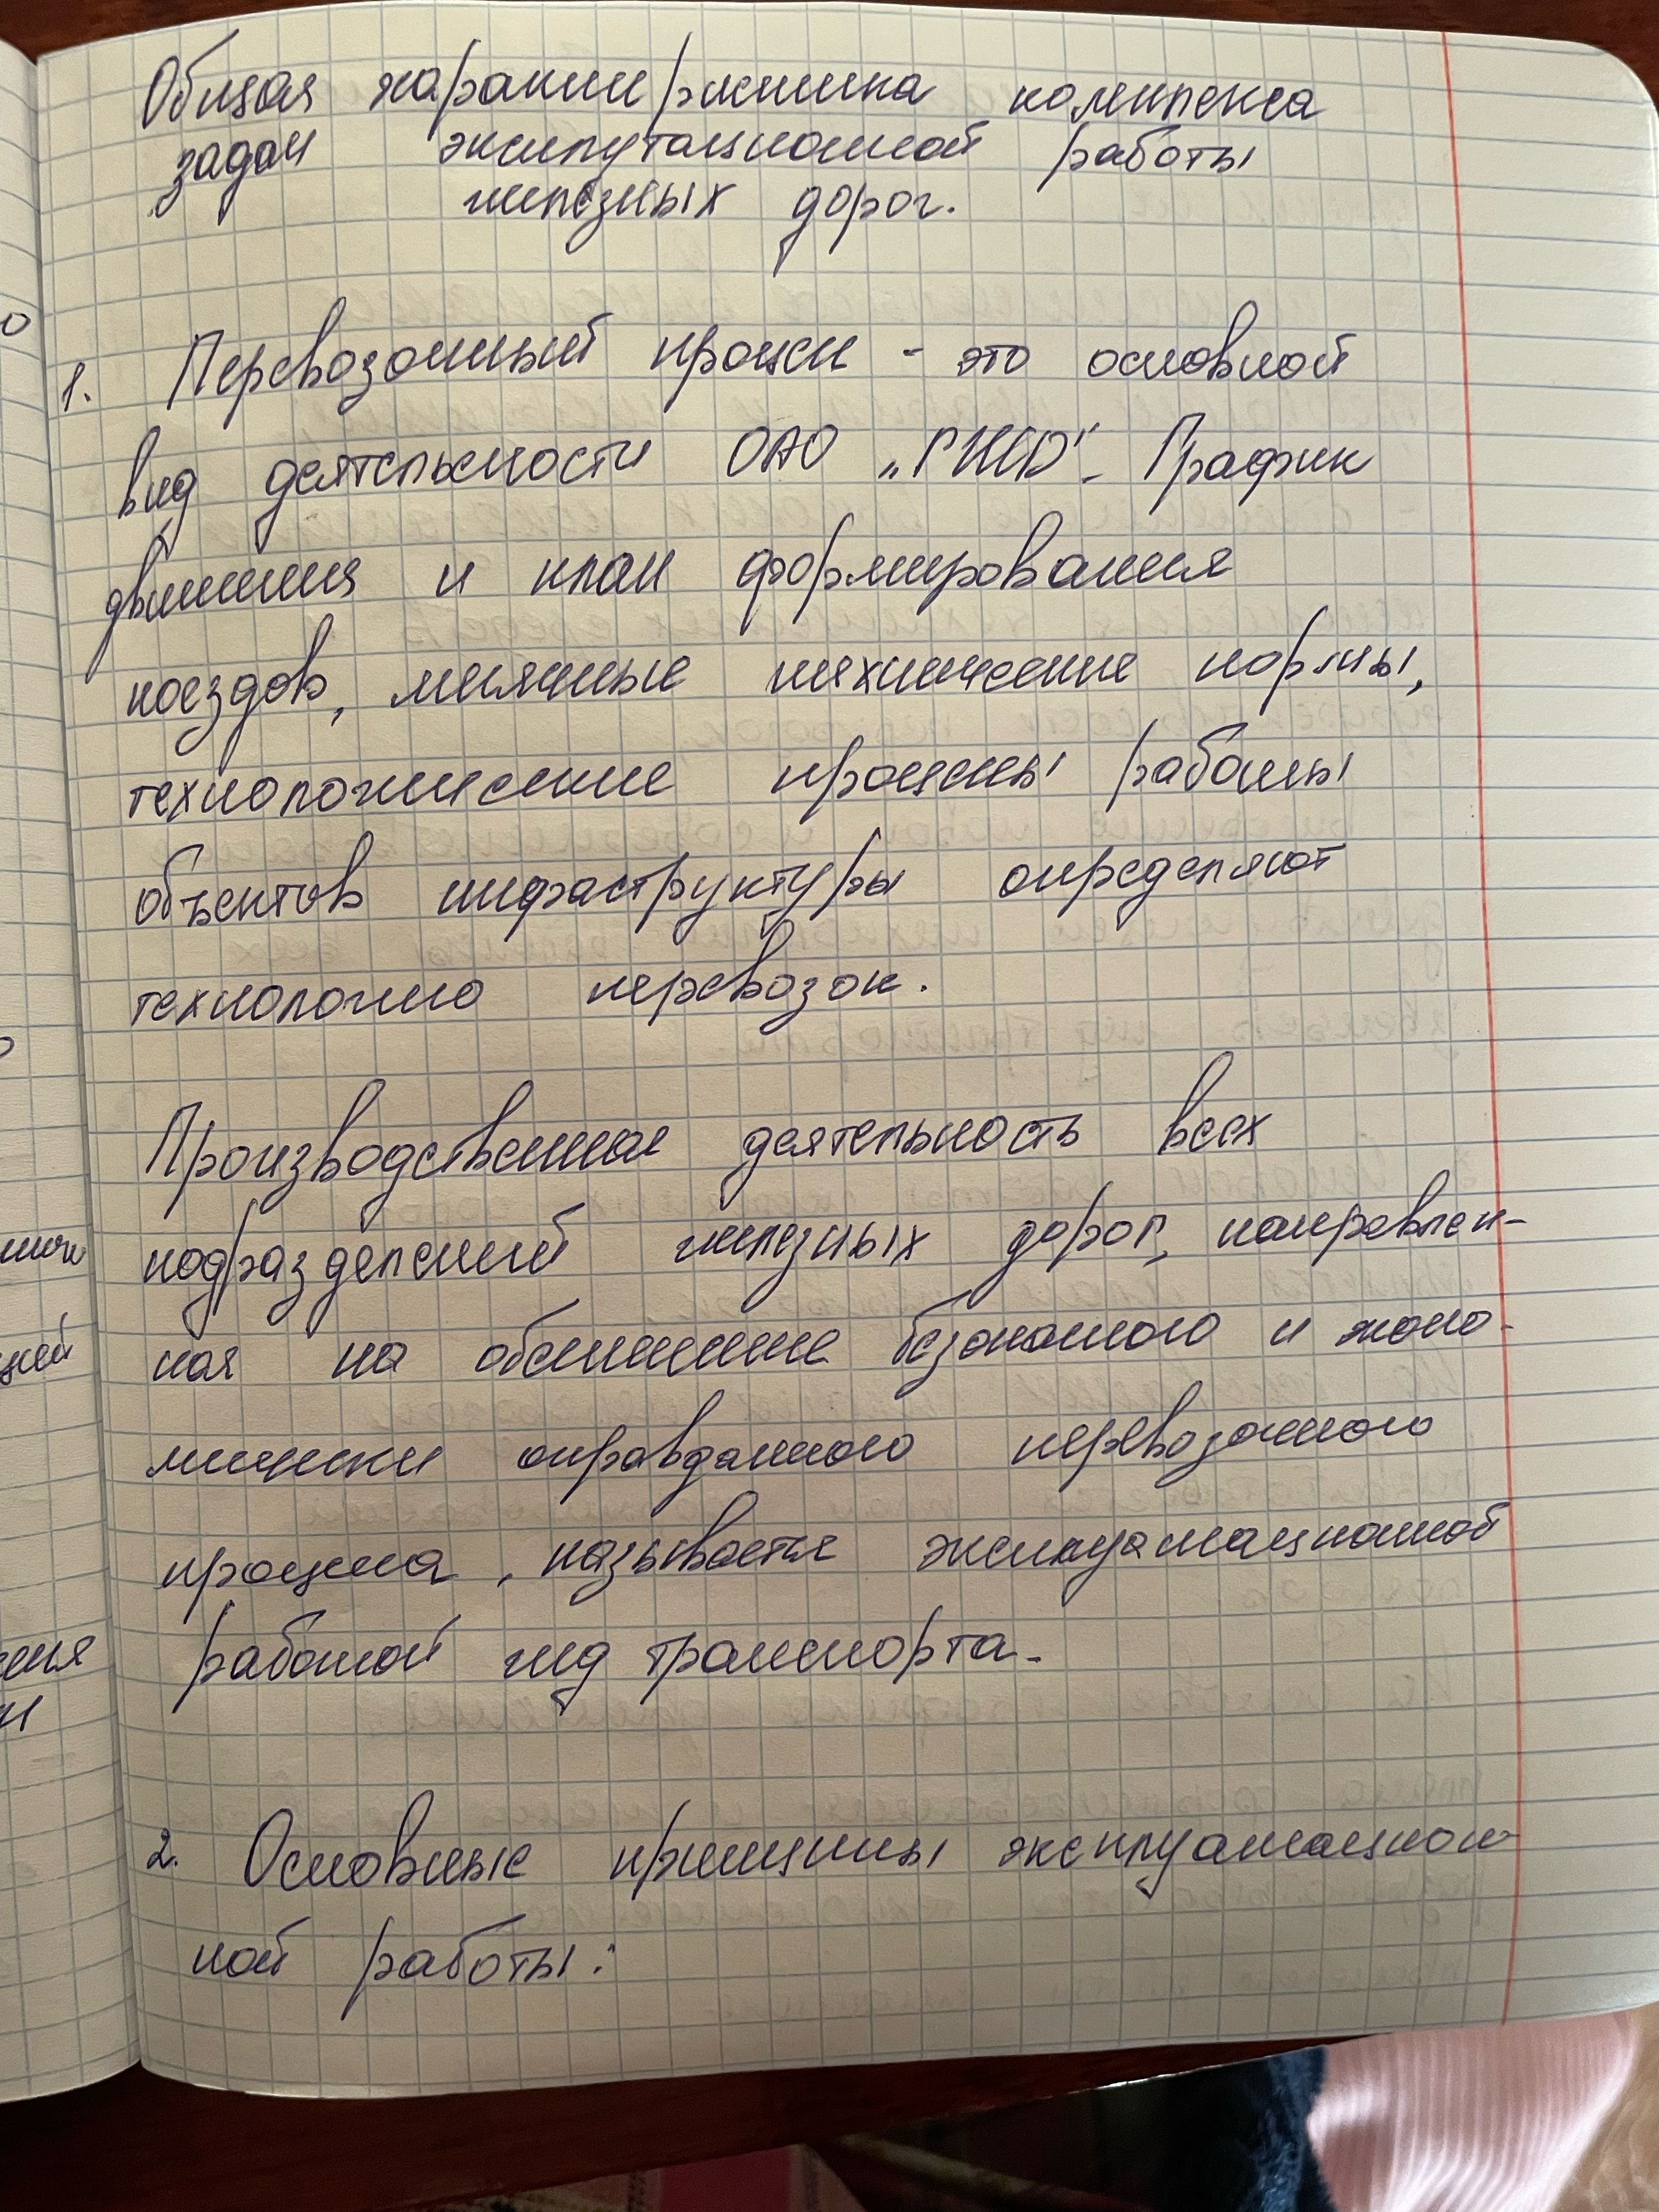 Общая характеристика комплекса
задач эксплутационной работы
железных дорог.
1. Перевозочный процесс - это основной
вид деятельности ОАО „РЖД". График
движения и план формирования
поездов, месячные технические нормы,
технологические процессы работы
объектов инфраструктуры определяют
технологию перевозок.
Производственная деятельность всех
подразделений железных дорог, направлен-
ная на обеспечение безопасного и эконо-
мически оправданного перевозочного
процесса, называется эксплуатационной
работой жд транспорта.
2. Основные принципы эксплуатацион-
ной работы: